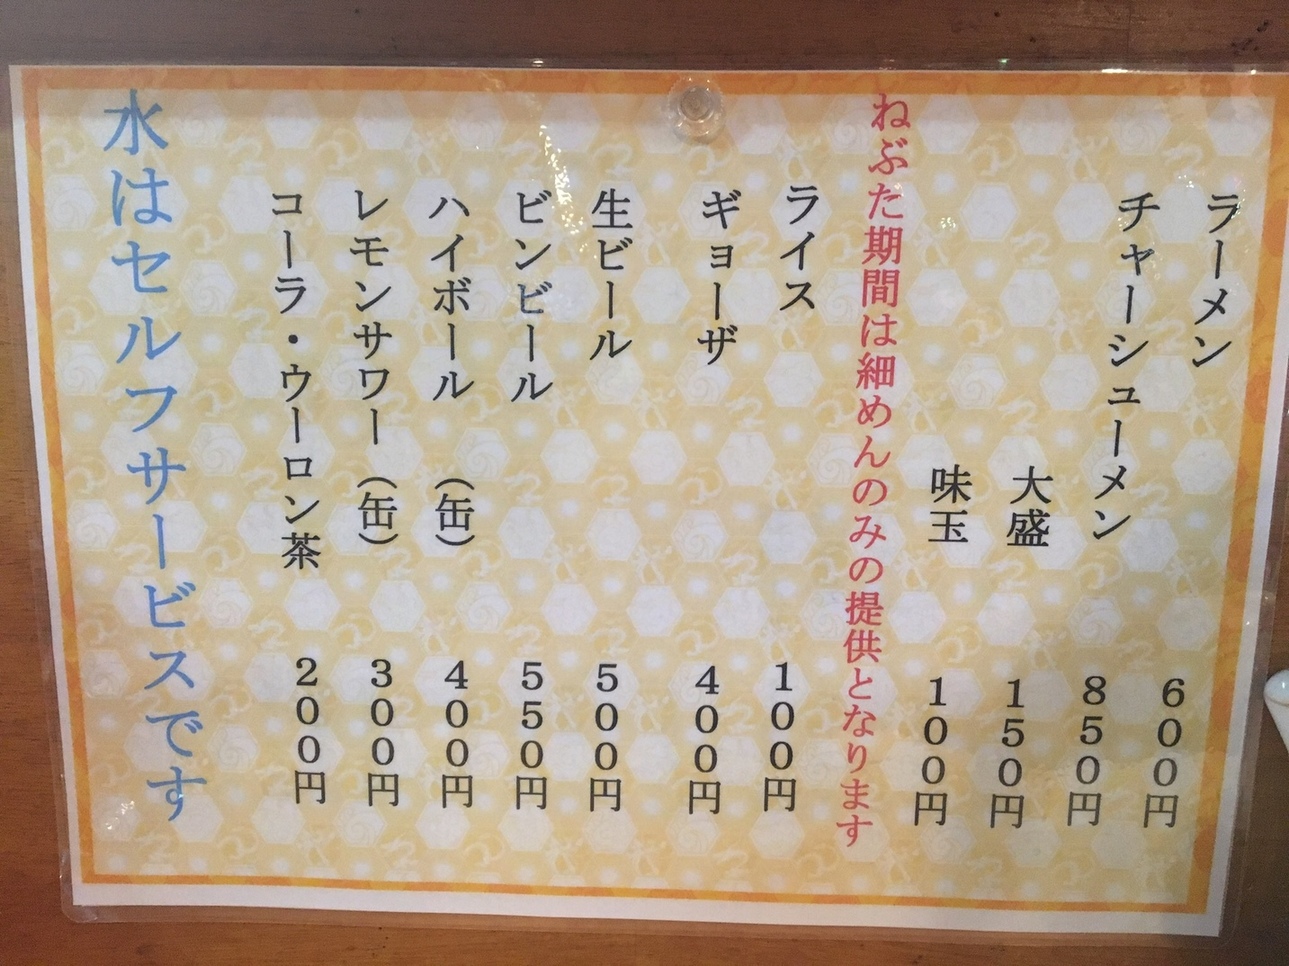 ラーメン　600円
チャーシューメン　850円
大盛　150円
味玉　100円
ねぶた期間は細めんのみの提供となります
ライス　100円
ギョーザ　400円
生ビール　500円
ビンビール　550円
ハイボール（缶）　400円
レモンサワー（缶）　300円
コーラ・ウーロン茶　200円
水はセルフサービスです